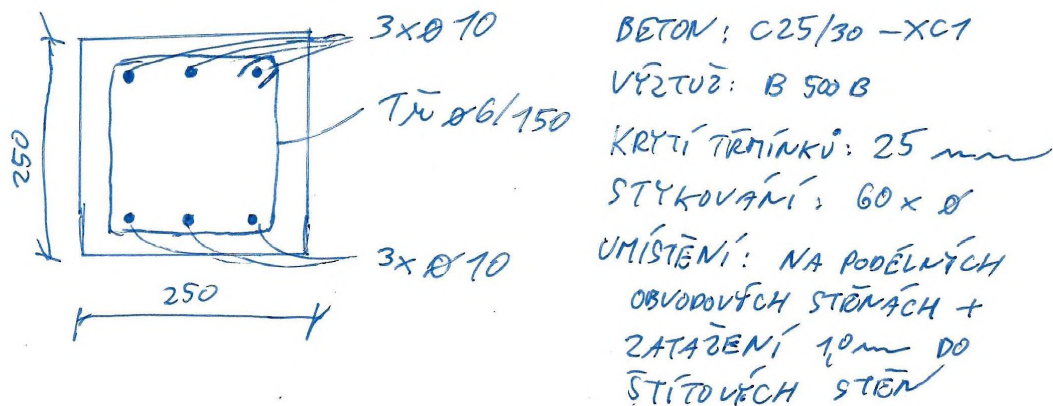 3xø10
Tř ø6/150
250
3xø10
250
BETON: C25/30 -XC1
VÝZTUŽ: B 500 B
KRYTÍ TŘMÍNKŮ: 25 mm
STYKOVÁNÍ: 60 x ø
UMÍSTĚNÍ: NA PODÉLNÝCH
OBVODOVÝCH STĚNÁCH +
ZATAŽENÍ 1,0 m DO
ŠTÍTOVÝCH STĚN